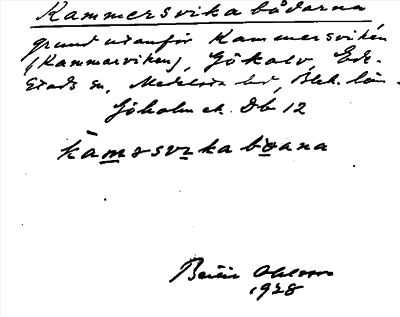 Kammersvikabådarna
grund utanför Kammersviken
(Kammarviken), Gökalv, Ede-
stads sn, Medelsta hd, Blek. län.
Sjökalm ek. Db 12
kamərsvika boana
Bertil Ohlsson
1928